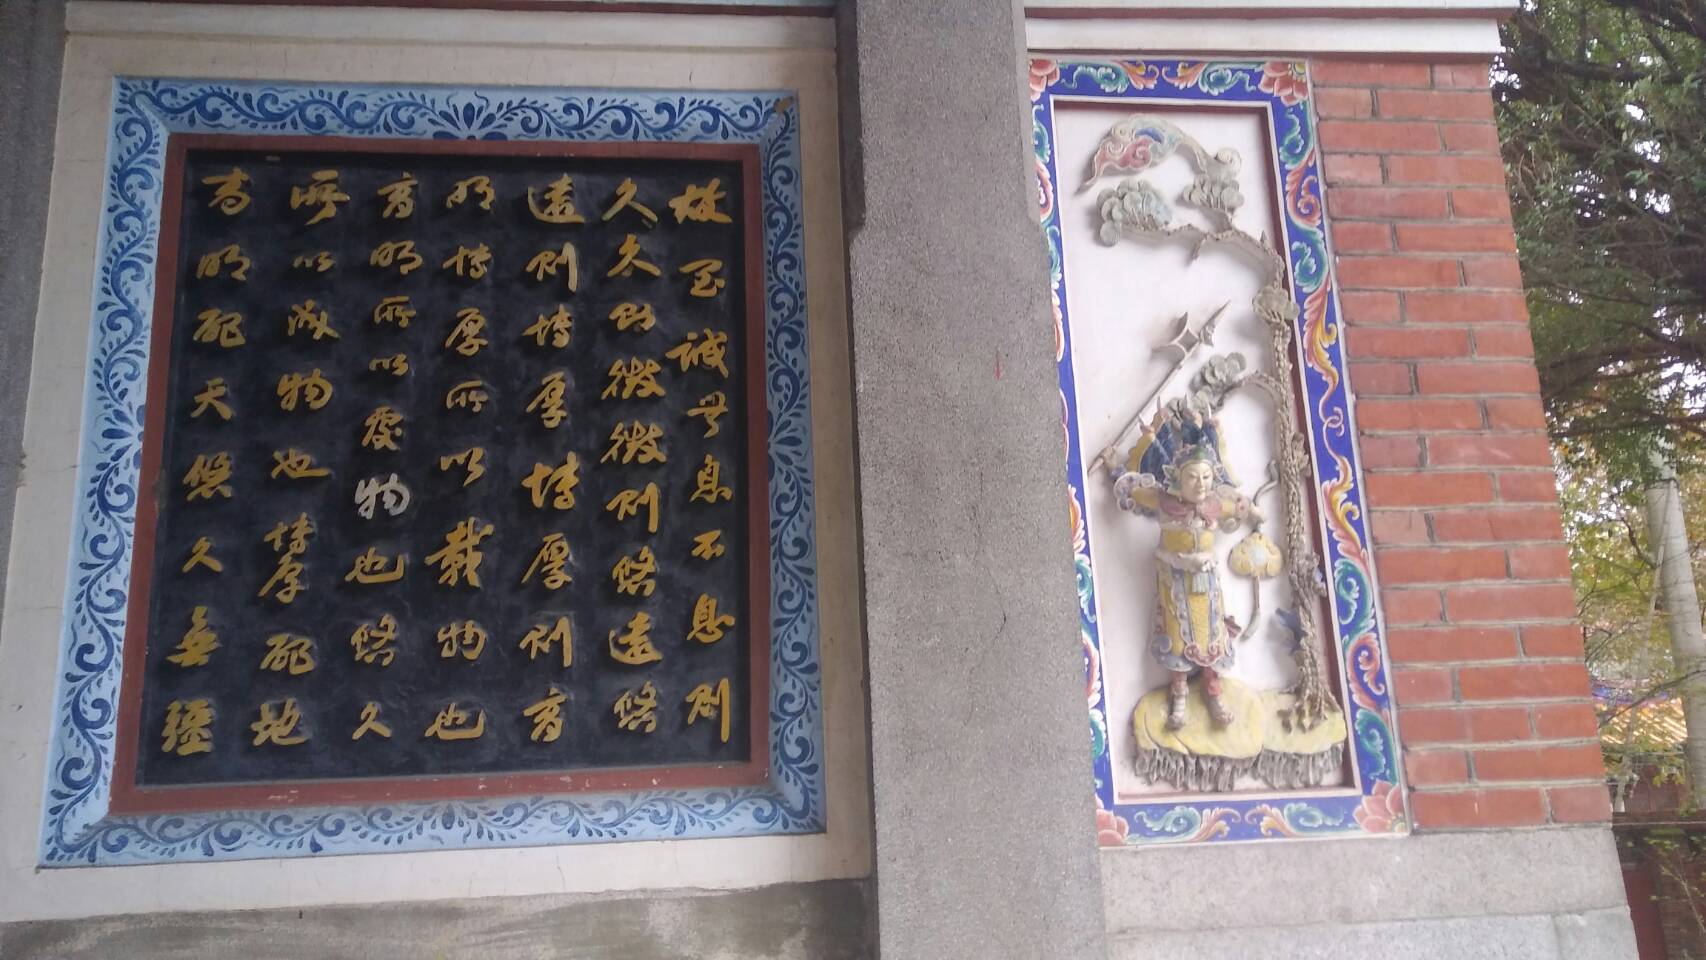 故至誠無息不息則
久久則徵徵則悠遠悠
遠則博厚博厚則高
明博厚所以載物也
高明所以覆物也悠久
所以成物也博厚配地
高明配天悠久無疆